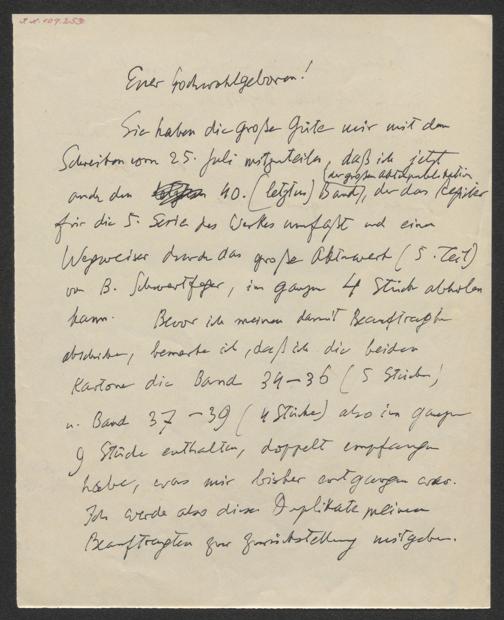 Euer Hochwohlgeboren!
Sie haben die große Güte mir mit dem
Schreiben vom 25. Juli mitzuteilen, daß ich jetzt
der großen Aktenpublikation
auch den 40. (letzten) Band, der das Register
für die 5. Serie des Werkes umfaßt und einen
Wegweiser durch das große Aktenwerk (5. Teil)
von B. Schwertfeger, im ganzen 4 Stück abholen
kann. Bevor ich meinen damit Beauftragten
abschicke, bemerke ich, daß ich die beiden
Kartone die Band 34–36 (5 Stücke)
u. Band 37–39 (4 Stücke) also im ganzen
9 Stücke enthalten, doppelt empfangen
habe, was mir bisher entgangen war.
Ich werde also diese Duplikate meinem
Beauftragten zur Zurückstellung mitgeben.